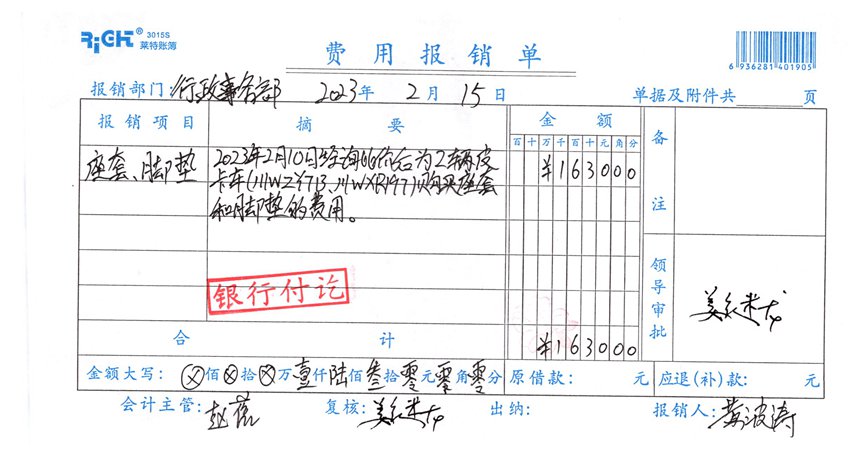 RiCH® 3015S
莱特账簿
费用报销单
6 936281 401905
报销部门:行政事务部 2023年 2月 15日 单据及附件共 页
报销项目 摘要 金额 备注
百十万千百十元角分
座套、脚垫 2023年2月10日经询比价后为2辆皮 ¥163000
卡车(川WZY713、川WXR197)购买座套
和脚垫的费用。
银行付讫
领导审批
合计 ¥163000
金额大写: ⊗佰⊗拾⊗万壹仟陆佰叁拾零元零角零分 原借款: 元 应退(补)款: 元
会计主管: 复核: 出纳: 报销人: 黄波涛